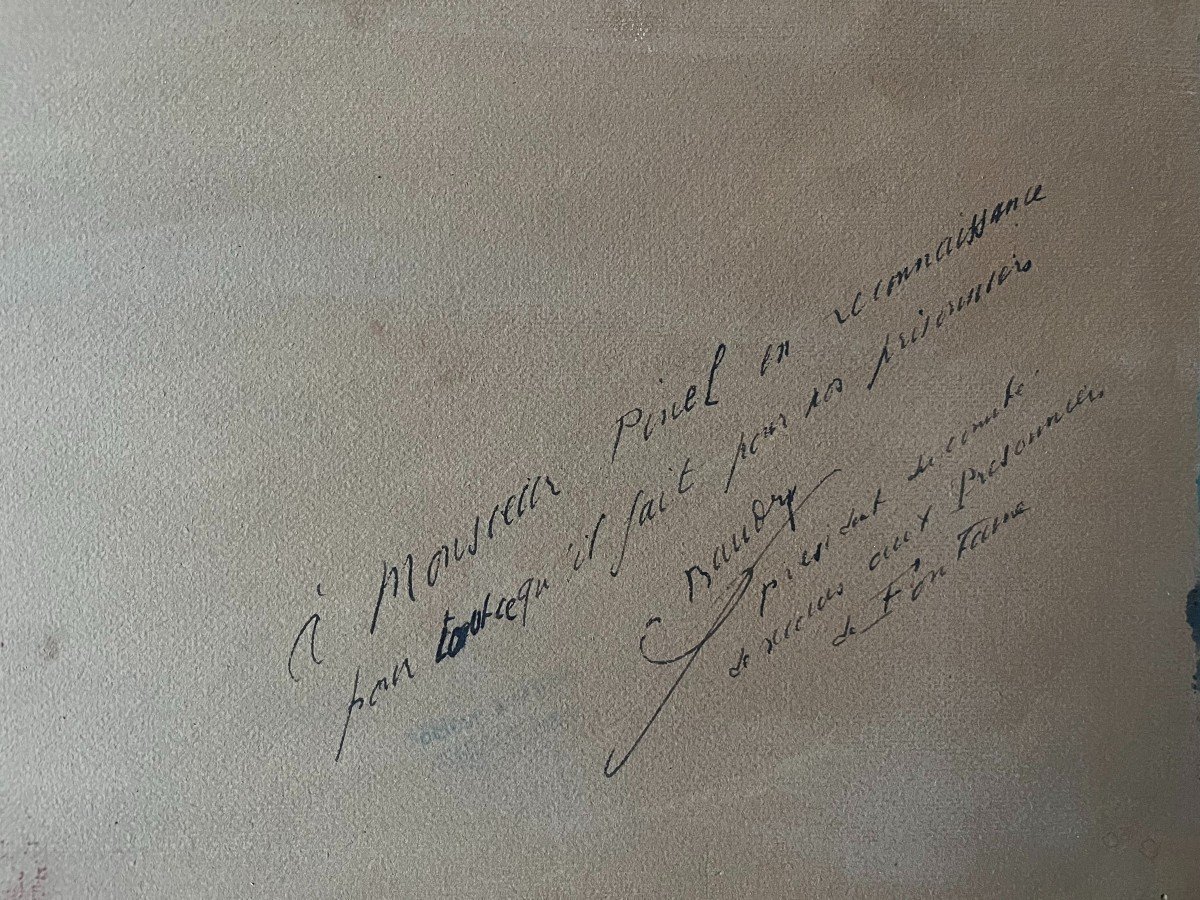 à Monsieur Pinel en reconnaissance
pour tout ce qu'il fait pour nos prisonniers
Baudry
président du comité
de secours aux Prisonniers
de Fontaine